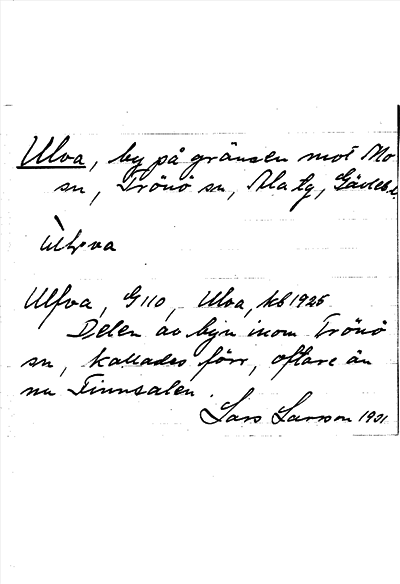 Ulva, by på gränsen mot Mo
sn, Trönö sn, Ala tg, Gävleb. l.
Ulfva, G 110, Ulva, kb 1925
Delen av byn inom Trönö
sn, kallades förr, oftare än
nu Finnsalen.
Lars Larsson 1931